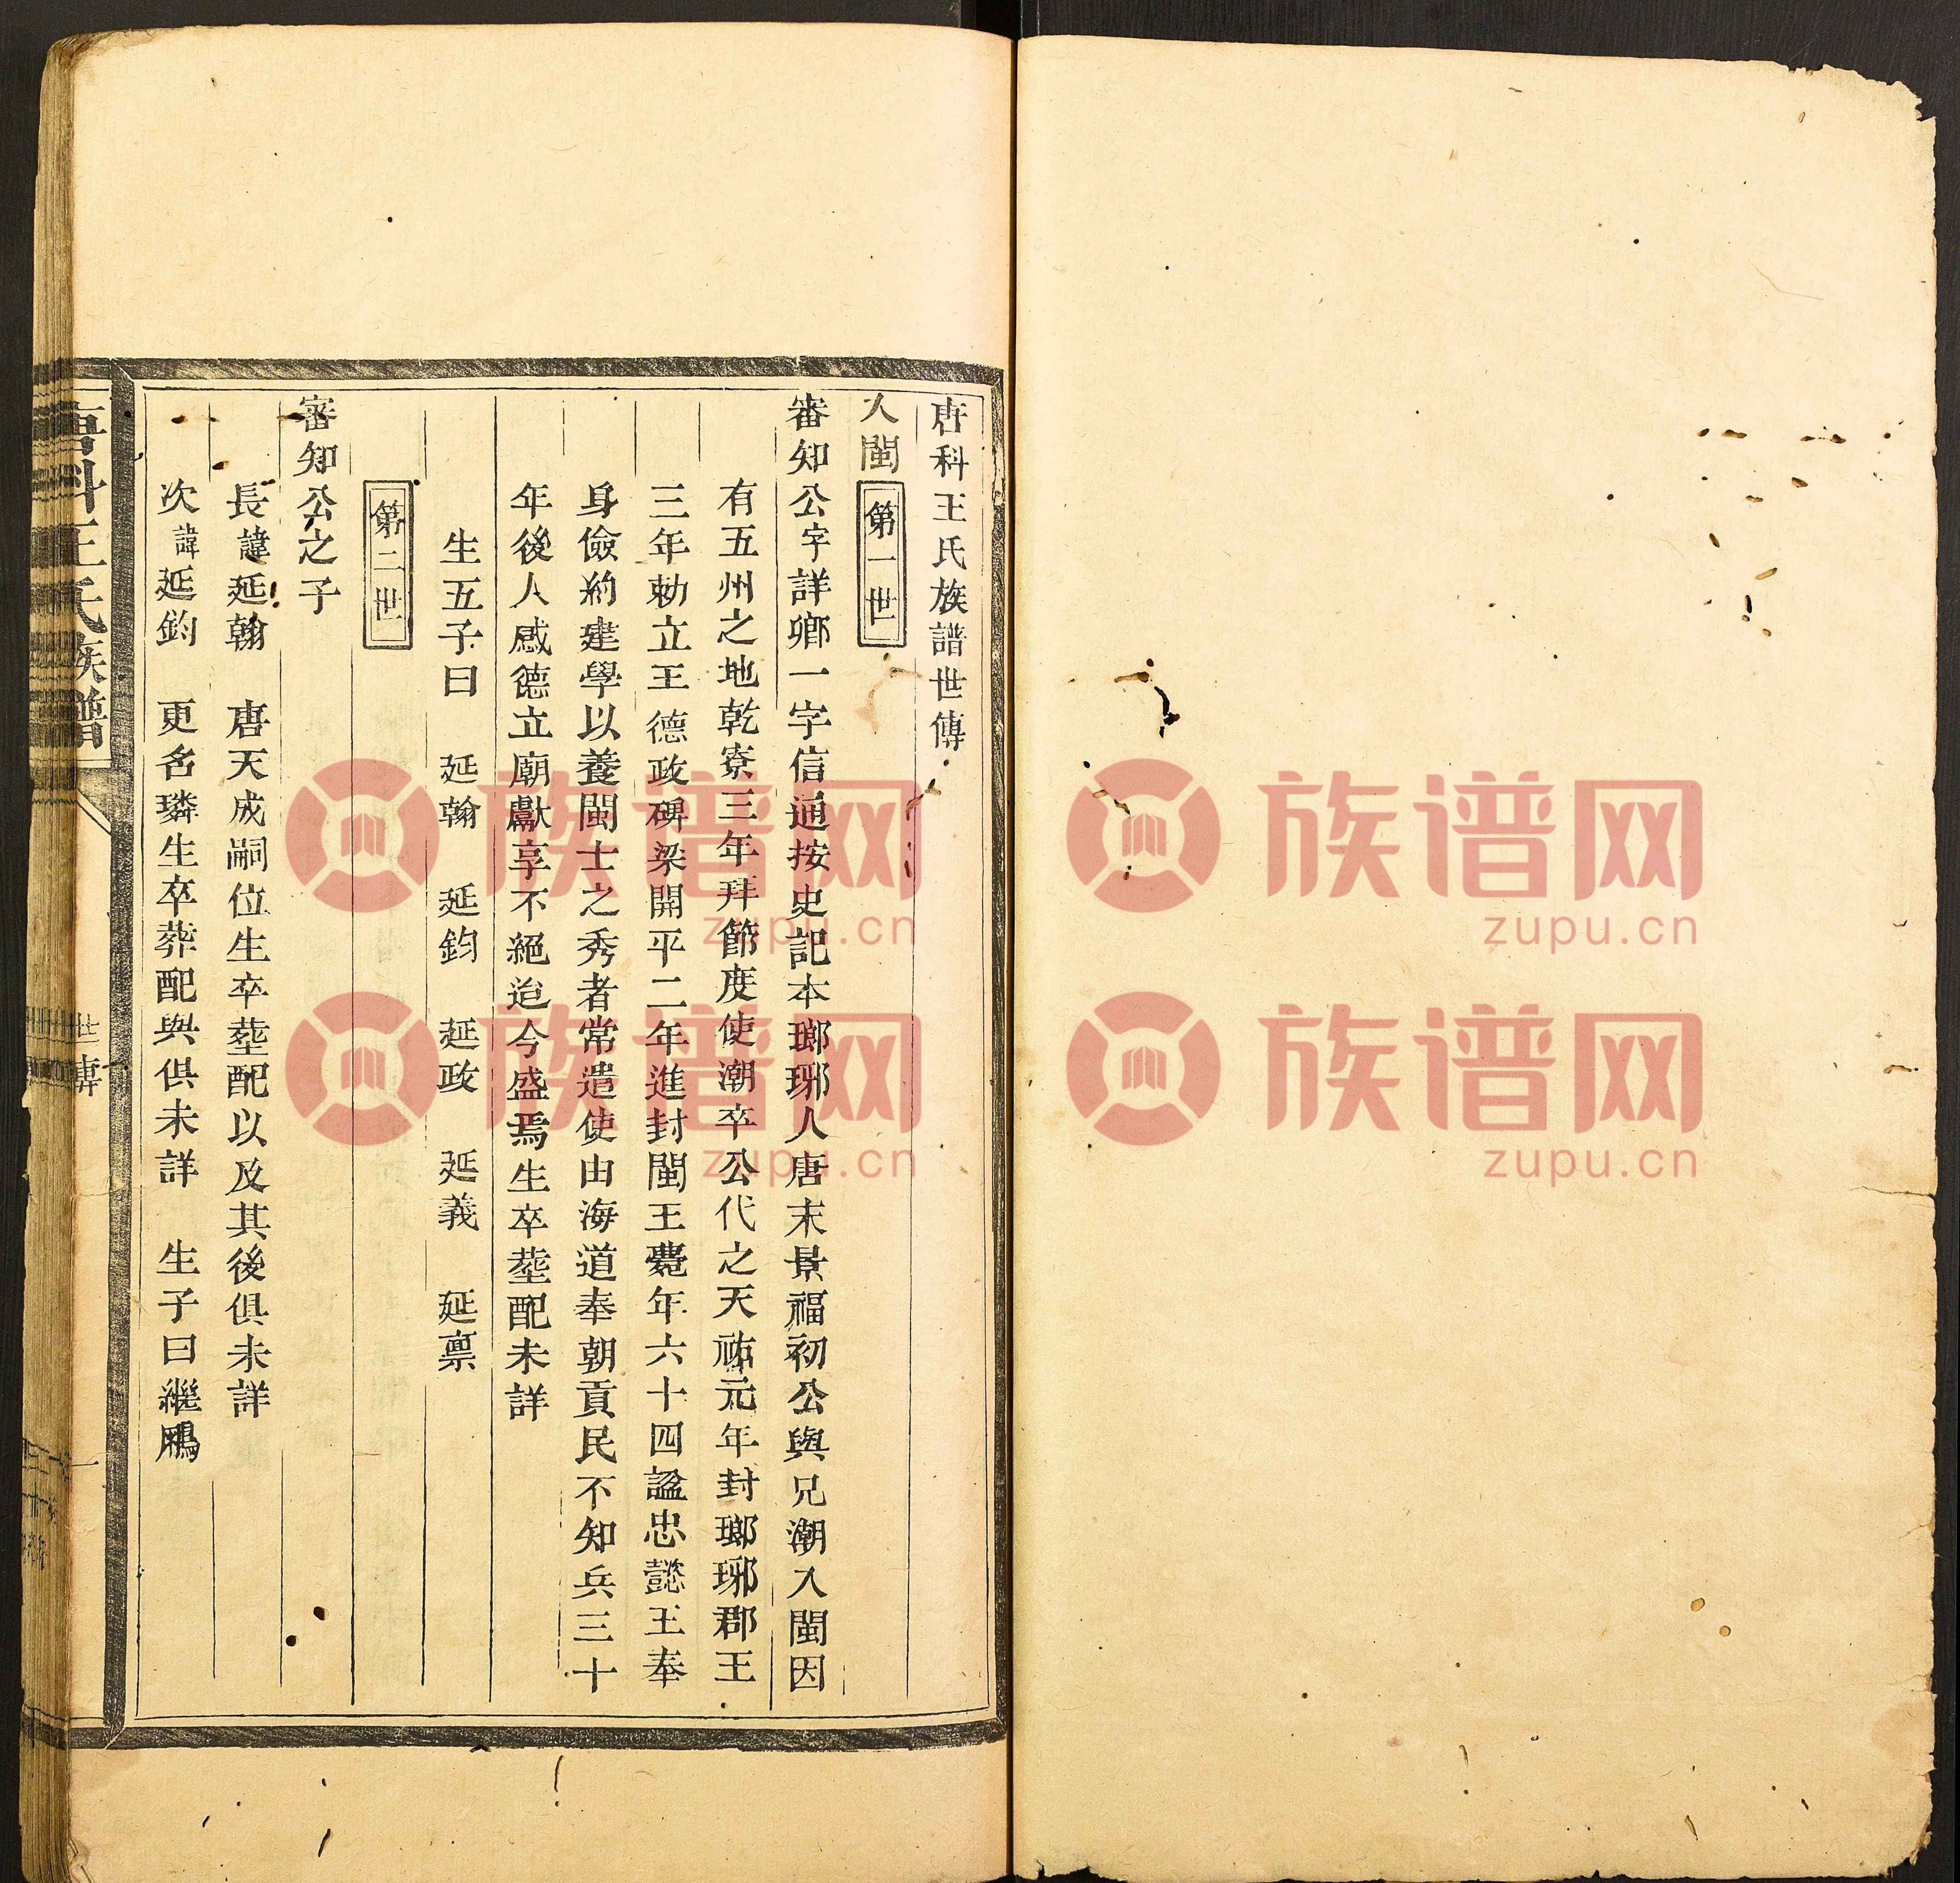 唐科王氏族譜世傳
入閩 第一世
審知公字詳鄉一字信通按史記本瑯琊人唐末景福初公與兄潮入閩因
有五州之地乾寮三年拜節度使潮卒公代之天祐元年封瑯琊郡王
三年勅立王德政碑梁開平二年進封閩王薨年六十四諡忠懿王奉
身儉約建學以養閩士之秀者常遣使由海道奉朝貢民不知兵三十
年後人感德立廟獻享不絕迨今盛焉生卒塟配未詳
生五子曰 延翰 延鈞 延政 延義 延禀
第二世
審知公之子
長諱延翰 唐天成嗣位生卒塟配以及其後俱未詳
次諱延鈞 更名璘生卒葬配與俱未詳 生子曰繼鵬
唐科王氏族譜 世傳 一
族谱网
zupu.cn
族谱网
zupu.cn
族谱网
zupu.cn
族谱网
zupu.cn